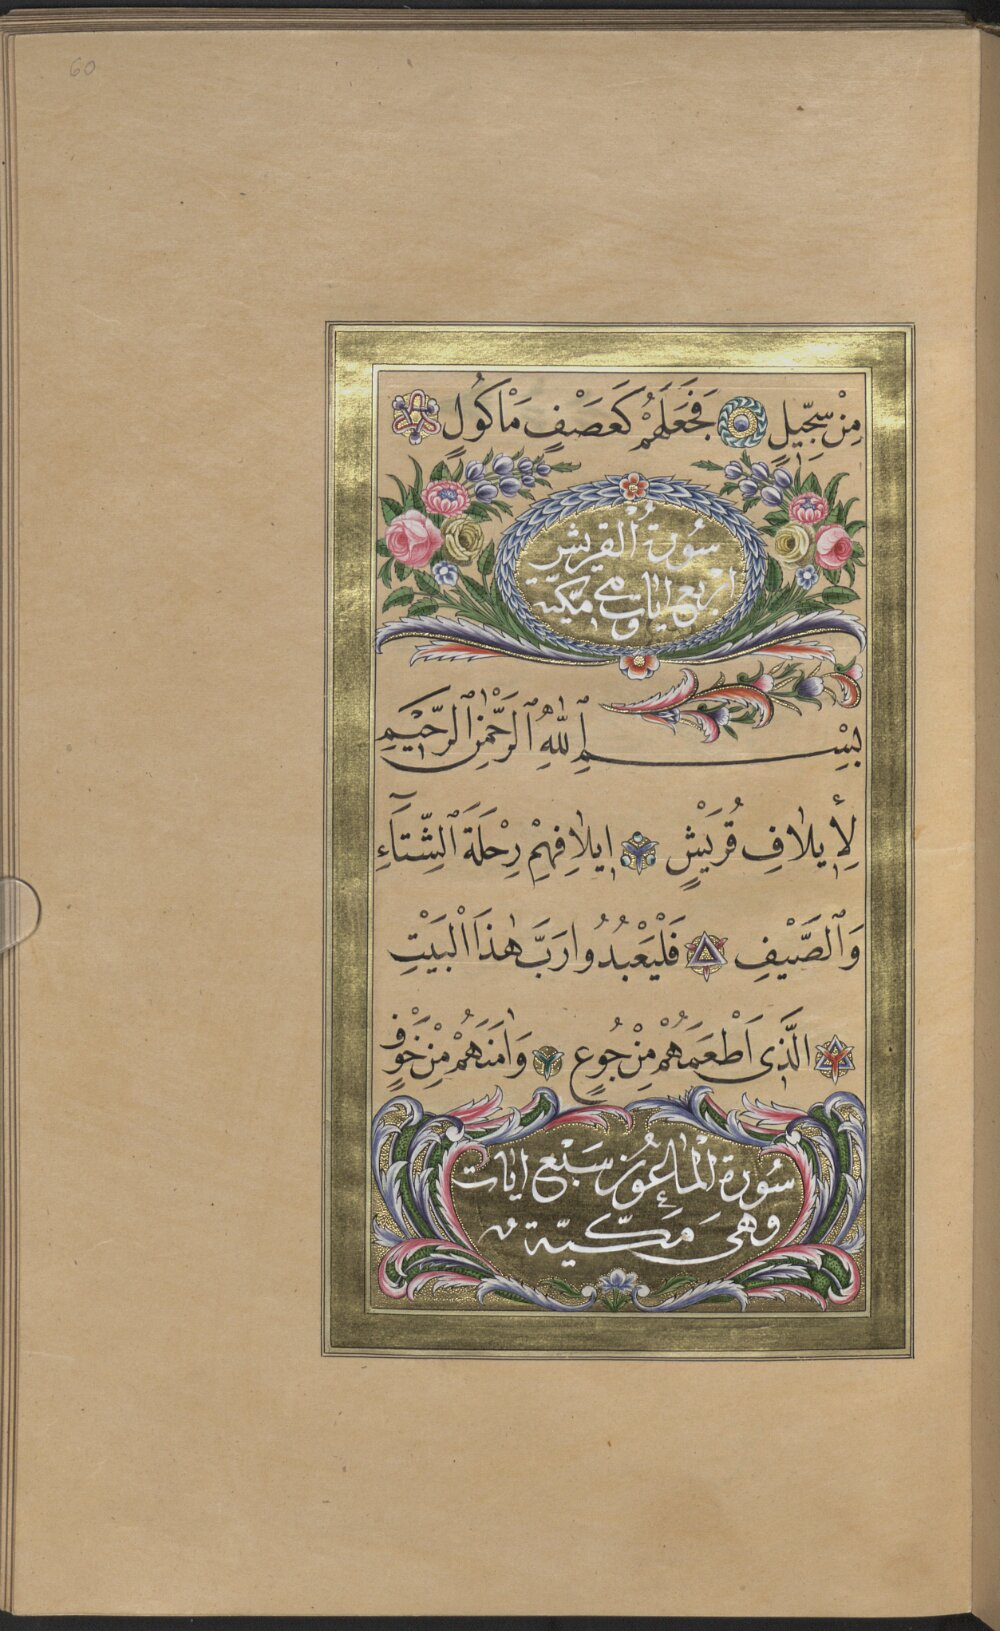 60
مِنْ سِجّٖيلٍ فَجَعَلَهُمْ كَعَصْفٍ مَاْكُولٍ
سُورَةُ الْقُرَيْشِ
اَرْبَعُ اٰيَاتٍ وَهِيَ مَكِّيَّة
بِسْمِ ٱللّٰهِ ٱلرَّحْمٰنِ ٱلرَّحٖيمِ
لِأٖيلَافِ قُرَيْشٍ اٖيلَافِهِمْ رِحْلَةَ ٱلشِّتَٓاءِ
وَٱلصَّيْفِ فَلْيَعْبُدُوا رَبَّ هٰذَا الْبَيْتِ
الَّذٖى اَطْعَمَهُمْ مِنْ جُوعٍ وَاٰمَنَهُمْ مِنْ خَوْفٍ
سُورَةُ الْمَاعُونِ سَبْعُ اٰيَات
وَهِىَ مَكِّيَّة